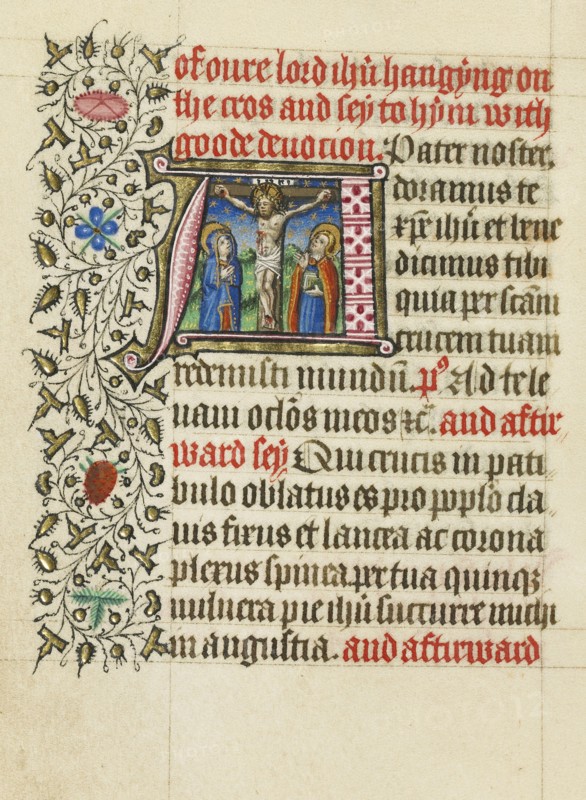 of oure lord ihū hangyng on
the cros and sey to hym with
goode deuocion. Pater noster.
INRI
Adoramus te
xp̄e ihū et bene
dicimus tibi
quia per scām
crucem tuam
redemisti mundū. pˢ Ad te le
uaui oclōs meos ⁊c̄. and aftir
ward sey Qui crucis in pati
bulo oblatus es pro pop̄lo cla
uis fixus et lancea ac corona
plexus spinea. per tua quinqꝫ
uulnera pie ihū succurre michi
in angustia. and aftirward